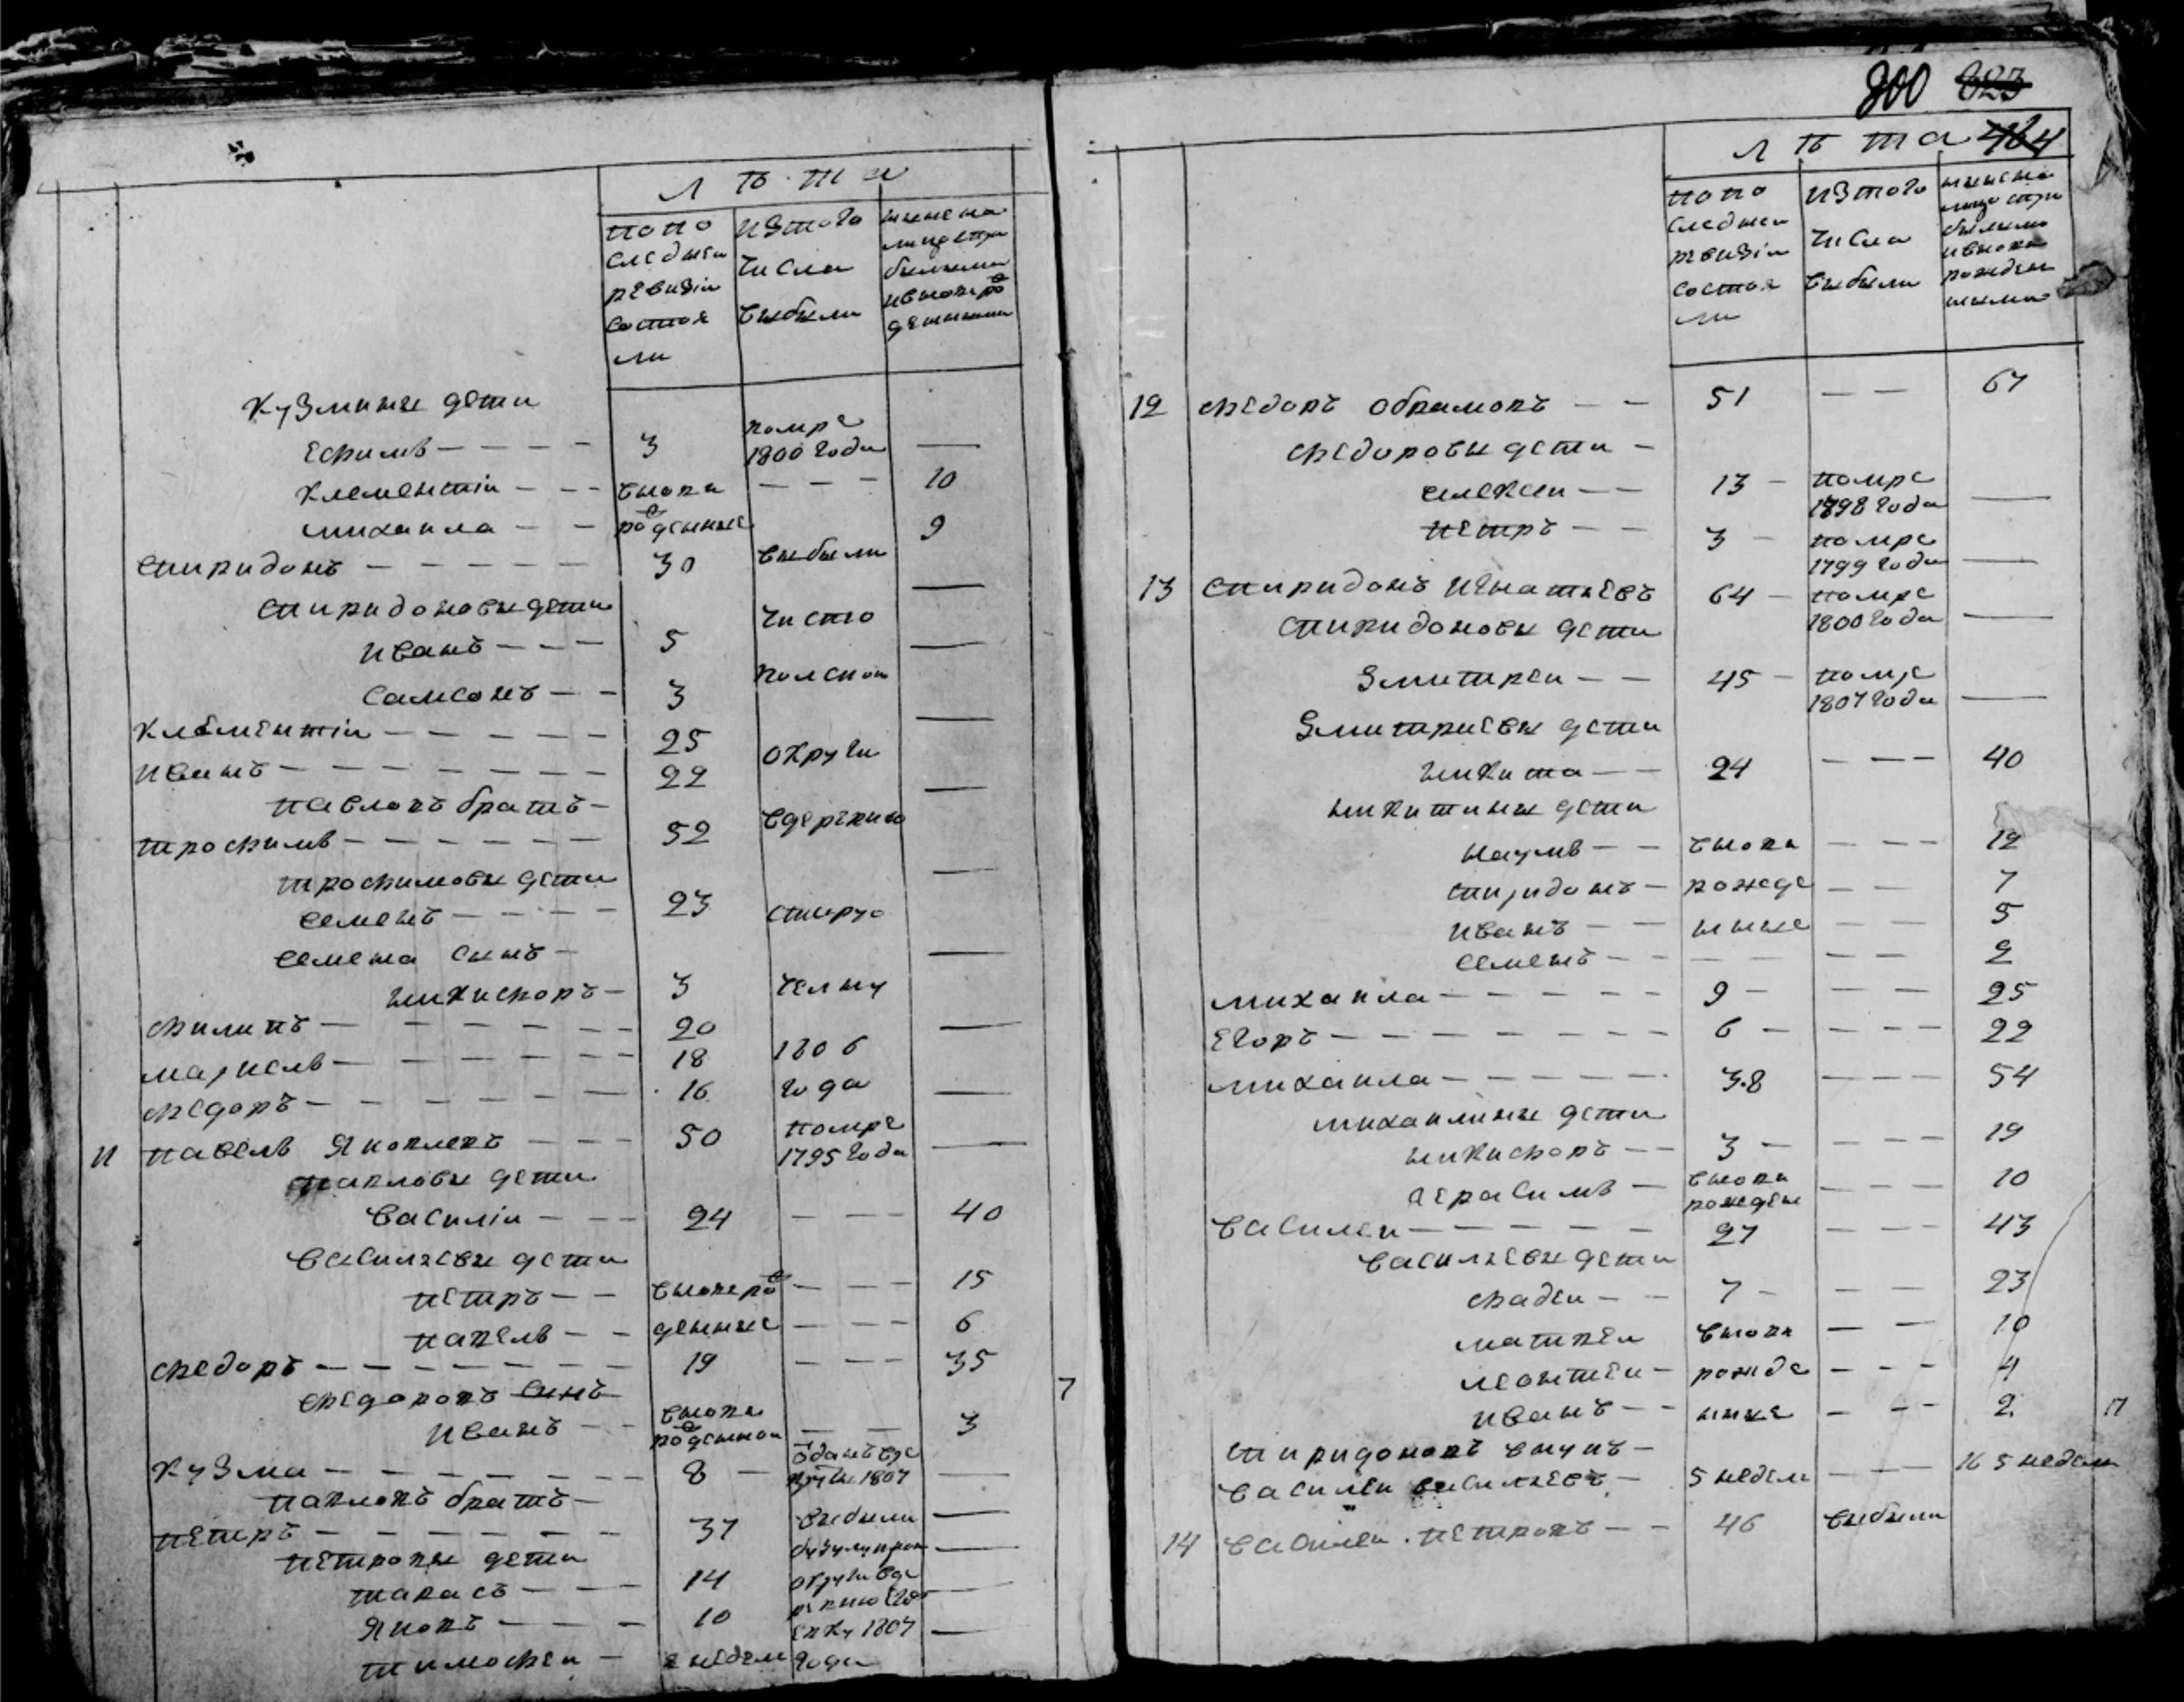 лѣта
попо изтого ныне на
следнеи числа лицо спри
ревизіи выбыли былыми
состоя ивновь ро
ли жденными
Кузмины дети
Ефимъ — 3 помре
1800 года —
Клементіи — вновь — 10
михаила — рожденные 9
Спиридонъ — 30 выбыли —
Спиридоновы дети чисто
Иванъ — 5 —
Самсонъ — 3 —
Клементіи — 25 округи
Иванъ — 22 —
павловъ братъ —
трофимъ — 52 —
трофимовы дети
Семенъ — 23 старую —
Семена сынъ —
никифоръ — 3 челну
филипъ — 20 —
маркелъ — 18 1806
федоръ — 16 года —
11 павелъ Яковлевъ — 50 помре
1795 года —
павловы дети
Василіи — 24 — 40
Васильевы дети
петръ — вновь ро — 15
павелъ — жденные — 6
федоръ — 19 — 35
федоровъ сынъ
Иванъ — вновь
рожденнои — 3
Кузма — 8 — отданъ врe
круты 1807 —
павловъ братъ —
петръ — 37 выбыли —
петровы дети —
тарасъ — 14 округи вде —
Яковъ — 10 1807 —
тимофеи — недели года
7
800 823
лѣта 464
попо изтого ныне на
следнеи числа лицо спри
ревизіи выбыли былыми
состоя ивновь
ли рожден
ными
12 федоръ обрамовъ — 51 — 67
федоровы дети —
алексеи — 13 — помре
1798 года —
петръ — 3 — помре
1799 года —
13 Спиридонъ игнатьевъ 64 — помре
1800 года —
Спиридоновы дети
Дмитреи — 45 — помре
1807 года —
Дмитриевы дети
никита — 24 — 40
никитины дети
наумъ — вновь — 12
Спиридонъ — рожде — 7
Иванъ — нные — 5
Семенъ — 2
михаила — 9 — 25
Егоръ — 6 — 22
михаила — 38 — 54
михаилины дети
никифоръ — 3 — 19
герасимъ — вновь
рожден — 10
Василеи — 27 — 43
Васильевы дети
фадеи — 7 — 23
матвеи вновь — 10
леонтеи — рожде — 4
Иванъ — нные — 2
Спиридоновъ внукъ —
Василеи васильевъ — 5 недель — 16 5 недель
14 Василеи петровъ — 46 выбыли